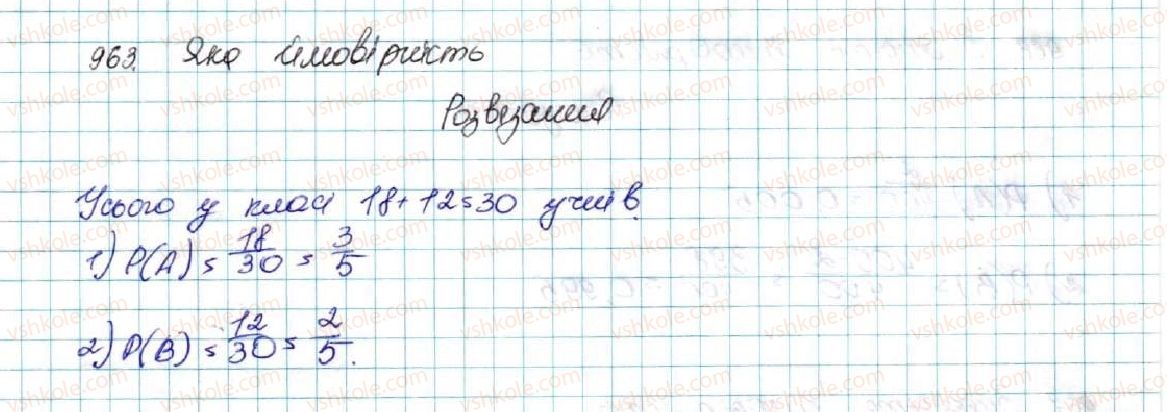 963. Яка ймовірність
Розв'язання
Усього у класі 18 + 12 = 30 учнів.
1) P(A) = 18/30 = 3/5
2) P(B) = 12/30 = 2/5.